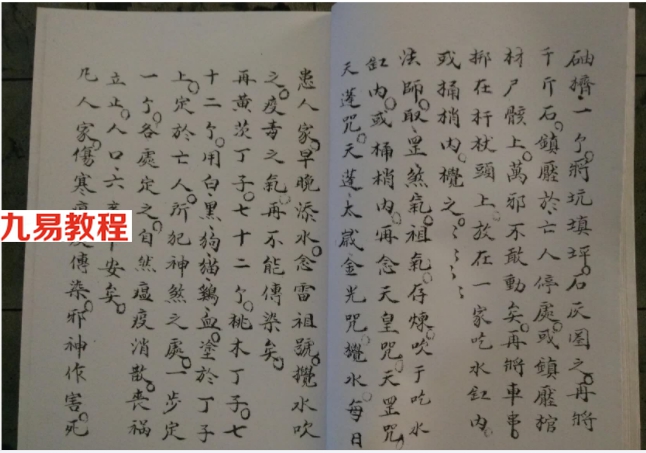 砷擠一个将坑填坪石灰圈之再將
千斤石鎮壓於亡人停處或鎮壓棺
材尸骸上萬邪不敢動矣再將車串
挷在杆杖頭上放在一家吃水缸内
或桶梢内攪之
法師取罡煞氣祖氣存煉吹于吃水
缸內或桶梢内再念天皇咒天罡咒
天蓬咒天蓬太歲金光咒攪水每日
患人家早晚添水念雷祖號攪水吹
之疫毒之氣再不能傳染矣
再黄茨丁子七十二个桃木丁子七
十二个用白黑狗猫鷄血塗於丁子
上定於亡人所犯神煞之處一步定
一个各處定之自然瘟疫消散喪禍
立止人口六安矣
凡人家傷寒疫傳染邪神作害死
九易教程